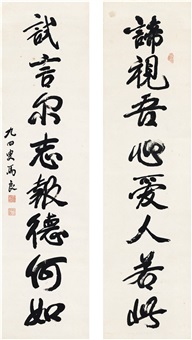 諦視吾心爱人若此
試言尔志報德何如
九四叟馬良